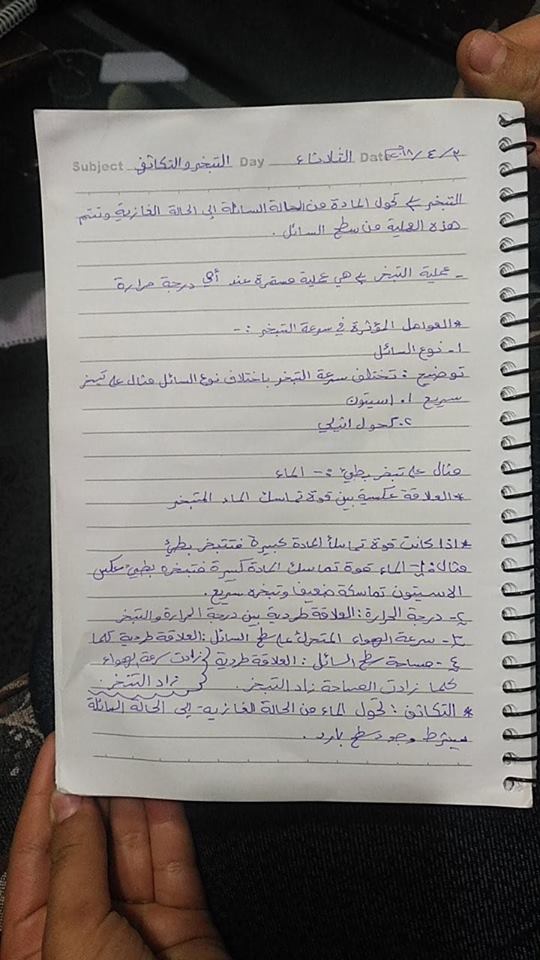 Subject التبخر والتكاثف Day الثلاثاء Date ٢٠١٨/٤/٣
التبخر ← تحول المادة من الحالة السائلة إلى الحالة الغازية وتتم
هذه العملية من سطح السائل.
- عملية التبخر ← هي عملية مستمرة عند أي درجة حرارة
* العوامل المؤثرة في سرعة التبخر :-
١- نوع السائل
توضيح : تختلف سرعة التبخر باختلاف نوع السائل مثال على تبخر
سريع ١. اسيتون
٢. كحول اثيلي
مثال على تبخر بطيئ :- الماء
* العلاقة عكسية بين قوة تماسك الماء المتبخر
* اذا كانت قوة تماسك المادة كبيرة فتتبخر بطئ
مثال :- الماء قوة تماسك المادة كبيرة فتبخره بطيئ عكس
الاسيتون تماسكة ضعيفا وتبخره سريع.
٢- درجة الحرارة : العلاقة طردية بين درجة الحرارة والتبخر
٣- سرعة الهواء المتحرك على سطح السائل : العلاقة طردية كلما
زادت سرعة الهواء
زاد التبخر.
٤- مساحة سطح السائل : العلاقة طردية
كلما زادت المساحة زاد التبخر.
* التكاثف : تحول الماء من الحالة الغازية إلى الحالة السائلة
بشرط وجود سطح بارد.